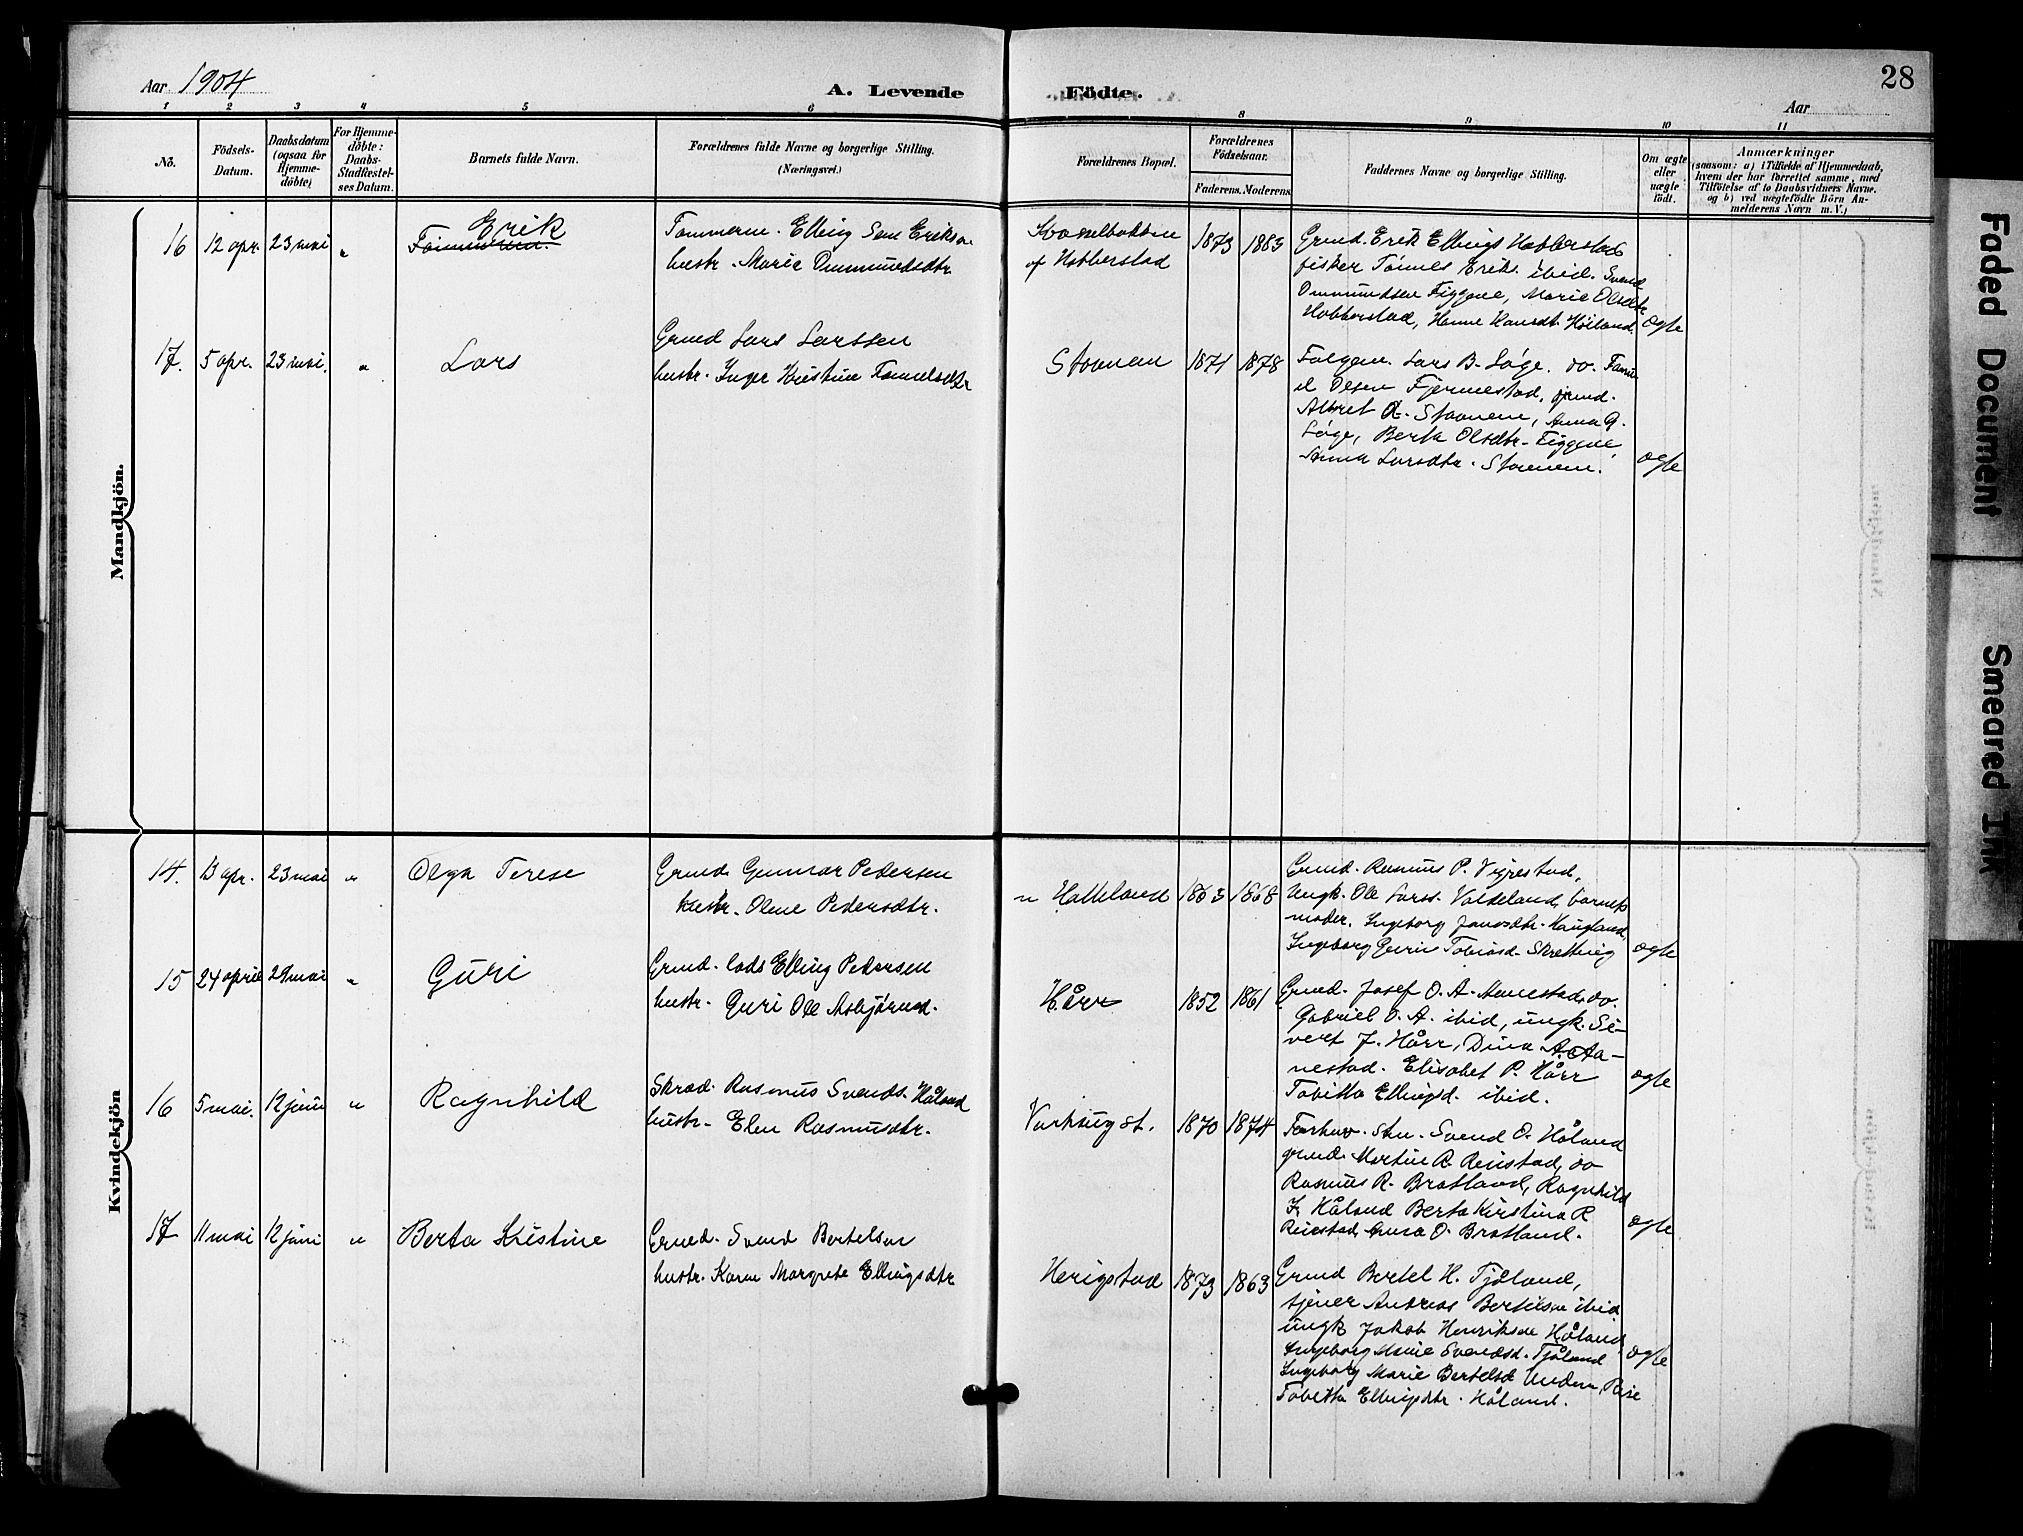 Aar 1904
A. Levende Födte.
Aar
28
1 2 3 4 5 6 8 9 10 11
No.
Födsels-Datum.
Daabsdatum (ogsaa for Hjemmedöbte)
For Hjemmedöbte: Daabs-Stadfæstelses Datum.
Barnets fulde Navn.
Forældrenes fulde Navne og borgerlige Stilling. (Næringsvei.)
Forældrenes Bopæl.
Forældrenes Födselsaar.
Faderens. Moderens.
Faddernes Navne og borgerlige Stilling.
Om ægte eller uægte födt.
Anmærkninger
(saasom: a) i Tilfælde af Hjemmedaab, hvem der har forrettet samme, med Tilföielse af to Daabsvidners Navne, og b) ved uægtefödte Börn Anmelderens Navn m. V.)
Mandkjön.
16 12 apr. 23 mai "
Erik
Elling Sem Eriksen
hustr. Marie Ommundsdtr.
af Hobberstad
1873 1883
Grmd. Erik Ellings Hobberstad
fisker Tönnes Eriks. ibid. Svend
Ommundsen Figgene, Marie Olsdtr
Hobberstad, Hanne Hansdt. Höiland.
ægte
17. 5 apr. 23 mai. "
Lars
Grmd Lars Larssen
hustr. Inger Kristine
Stavnem
1871 1878
Lars B. Söge. do.
Olsen Fjermestad, grmd.
Stavnem, Anna G.
Söge, Berta Olsdtr. Figgene,
Anna Larsdtr. Stavnem.
ægte
Kvindekjön
14. 13 apr. 23 mai "
Olga Terese
Grmd. Gunnar Pedersen
hustr. Oline Pedersdtr.
n Hatteland
1863 1868
Grmd. Rasmus P. Vigrestad,
Ungk. Ole Larss. Valdeland, barnets
moder. Ingeborg Jonasdtr. Haugland,
Ingeborg Tobiasd. Skretting
ægte
15 24 april 29 mai "
Guri
Grmd. Lads Elling Pedersen
hustr. Guri Ole Asbjörnsd.
Hårr
1852 1861
Grmd. Josef O. A. Anestad, do.
Gabriel O. A. ibid, ungk. Si-
vert J. Hårr, Dina A. Aa-
nestad. Elisabet P. Hårr
Tobitta Ellingsd. ibid.
ægte
16 5 mai. 12 juni "
Ragnhild
Skræd. Rasmus Svends. Håland
hustr. Elen Rasmusdtr.
Varhaug st.
1870 1874
Svend O. Håland
grmd. Martin R. Reiestad, do
Rasmus R. Bratland, Ragnhild
Håland Berta Kirstina R
Reiestad, Anna O. Bratland.
ægte
17 11 mai 12 juni "
Berta Kristine
Grmd. Svend Bertelsen
hustr. Karen Margrete Ellingsdtr
Herigstad
1873 1863
Grmd Bertel H. Tjåland,
tjener Andreas Bertelsen ibid
ungk Jakob Henriksen Håland,
Ingeborg Marie Svendsd. Tjåland
Ingeborg Marie Bertelsd
Tobitta Ellingsdtr. Håland.
ægte
Faded Document
Smeared Ink